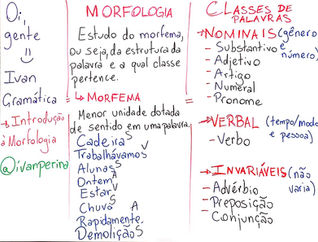 Oi,
gente
=)
Ivan
Gramática
→ Introdução
à Morfologia
@ivanperina
MORFOLOGIA
Estudo do morfema,
ou seja, da estrutura da
palavra e a qual classe
pertence.
→ MORFEMA
Menor unidade dotada
de sentido em uma palavra.
Cadeiras S
Trabalhávamos V
Alunas S
Ontem A
Estar V
Chuva S
Rapidamente A
Demolição S
CLASSES DE
PALAVRAS
→ NOMINAIS (gênero
e número)
- Substantivo
- Adjetivo
- Artigo
- Numeral
- Pronome
→ VERBAL (tempo/modo
e pessoa)
- Verbo
→ INVARIÁVEIS (não
varia)
- Advérbio
- Preposição
- Conjunção